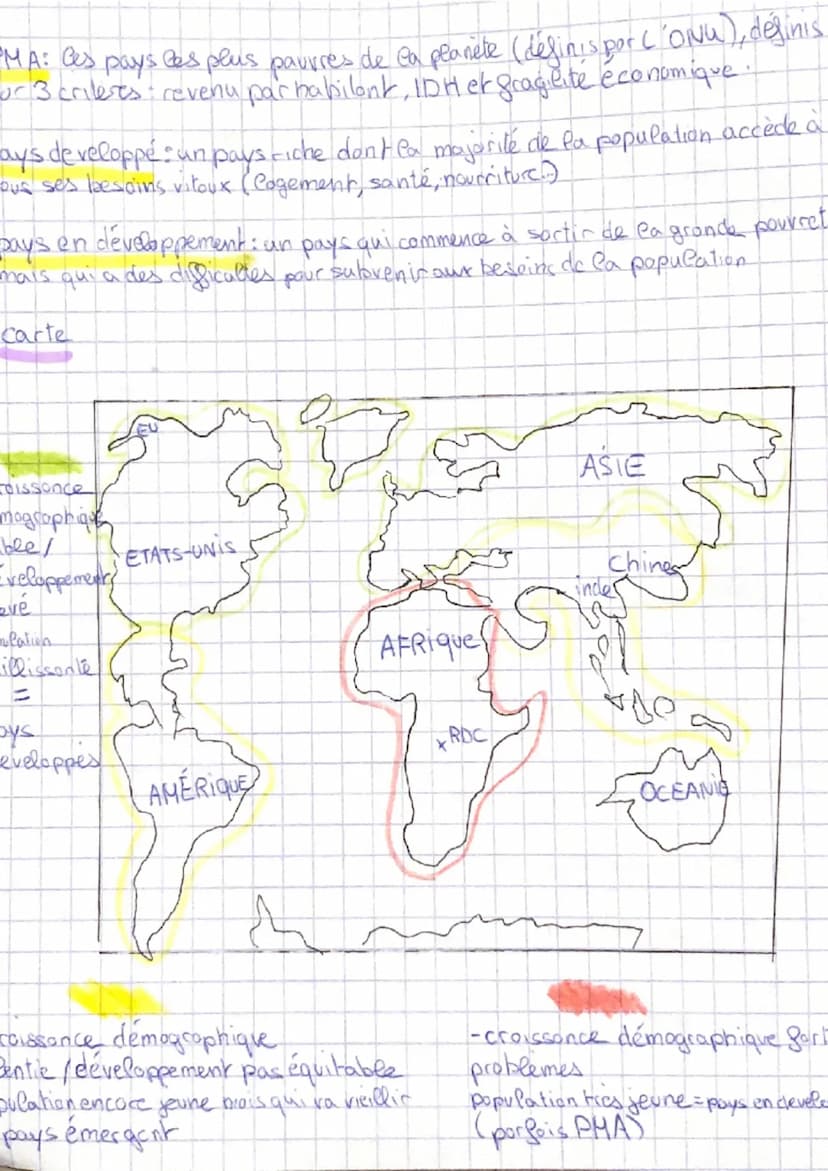 PMA: les pays les plus pauvres de la planète (définis par l'ONU), définis
or 3 criteres : revenu par habitant, IDH et fragilité économique.
ays developpé : un pays riche dont la majorité de la population accède à
ous ses besoins vitaux (logement, santé, nourriture..)
pays en développement : un pays qui commence à sortir de la grande pauvret
mais qui a des difficultés pour subvenir aux besoins de la population
carte
EU
ASIE
roissance
mographique
ble /
ETATS-UNIS
éveloppement
Chine
inde
evé
ulation
AFRique
illissante
=
ays
xRDC
eveloppés
AMÉRIQUE
OCEANIE
roissance démographique
entie / développement pas équitable
pulation encore jeune mais qui va vieillir
pays émergent
-croissance démographique fort
problèmes
population très jeune = pays en develo
(parfois PMA)